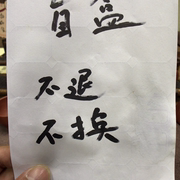 盲盒
不退
不换